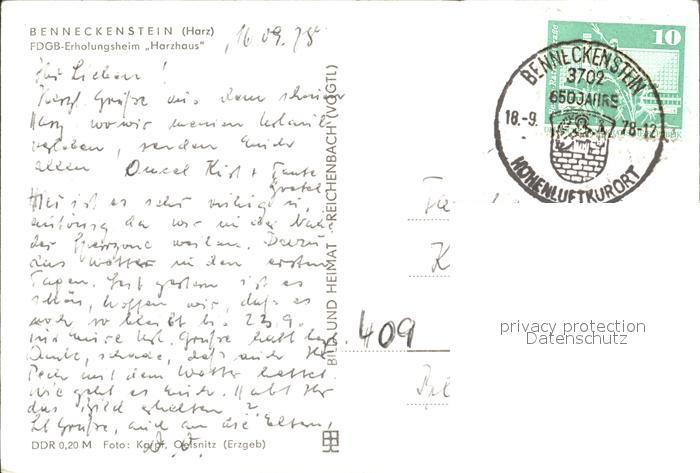 BENNECKENSTEIN (Harz)
FDGB-Erholungsheim „Harzhaus"
16.09.78
Ihr Lieben!
Herzl. Grüße aus dem schönen
Harz, wo wir unseren Urlaub
verleben, senden Euch
allen Onkel Kurt + Tante
Gretel
Hier ist es sehr ruhig u.
eintönig da wir in der Nähe
der Sperrzone weilen. Dazu
das Wetter in den ersten
Tagen. Seit gestern ist es
schön, hoffen wir, daß es
noch so bleibt bis 23.9.
Grüße
schade, daß auch Ihr
Pech mit dem Wetter hattet
Wie geht es Euch. Habt Ihr
das Bild erhalten?
Grüße, auch an die Eltern,
DDR 0,20 M Foto: Karpf, Oelsnitz (Erzgeb)
BILD UND HEIMAT REICHENBACH (VOGTL)
10
BENNECKENSTEIN
3702
650 JAHRE
18.-9. 78-12
HÖHENLUFTKURORT
409
privacy protection
Datenschutz